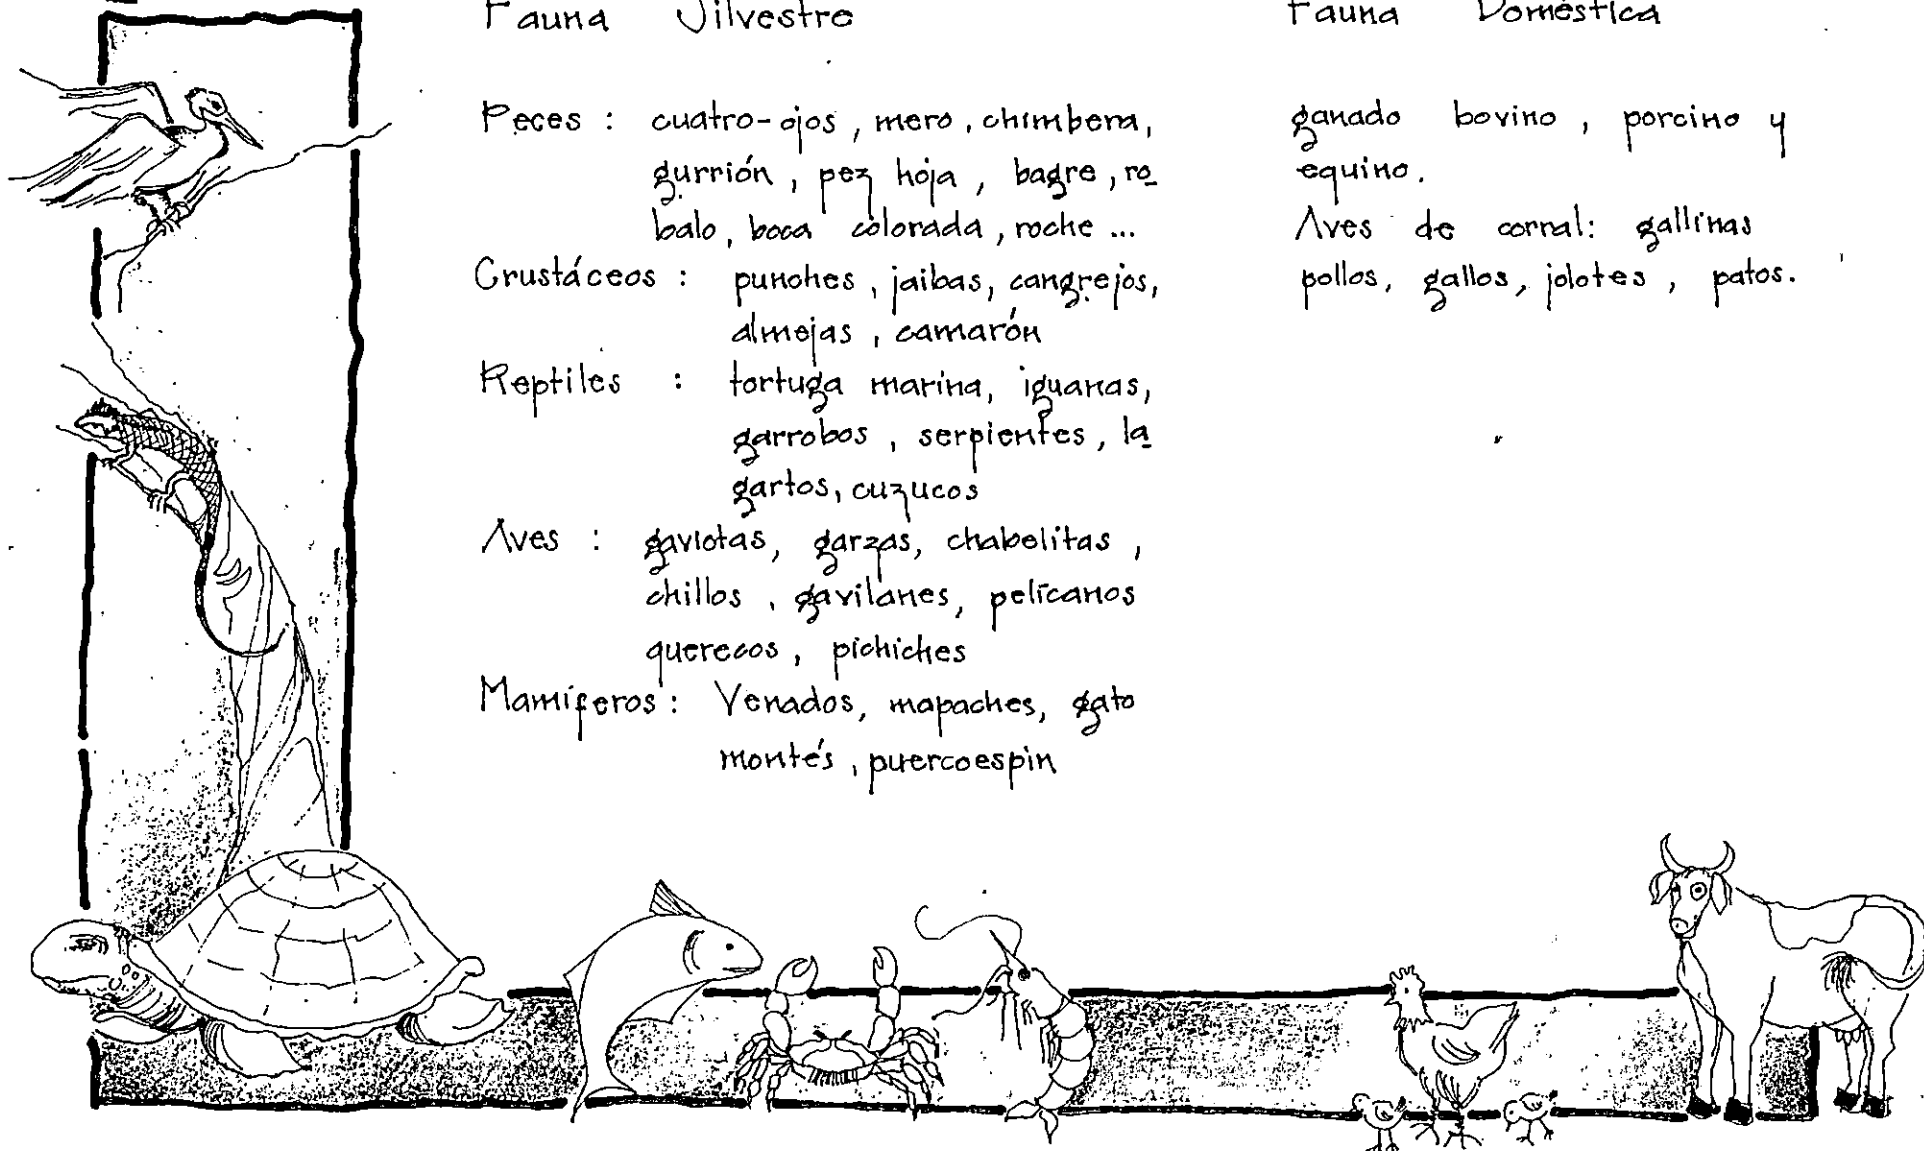 Fauna Silvestre
Peces : cuatro-ojos, mero, chimbera,
gurrión, pez hoja, bagre, ro
balo, boca colorada, roche ...
Crustáceos : punches, jaibas, cangrejos,
almejas, camarón
Reptiles : tortuga marina, iguanas,
garrobos, serpientes, la
gartos, cuzucos
Aves : gaviotas, garzas, chabelitas,
chillos, gavilanes, pelícanos
querecos, pichiches
Mamíferos : Venados, mapaches, gato
montés, puercoespin
Fauna Doméstica
ganado bovino, porcino y
equino.
Aves de corral: gallinas
pollos, gallos, jolotes, patos.